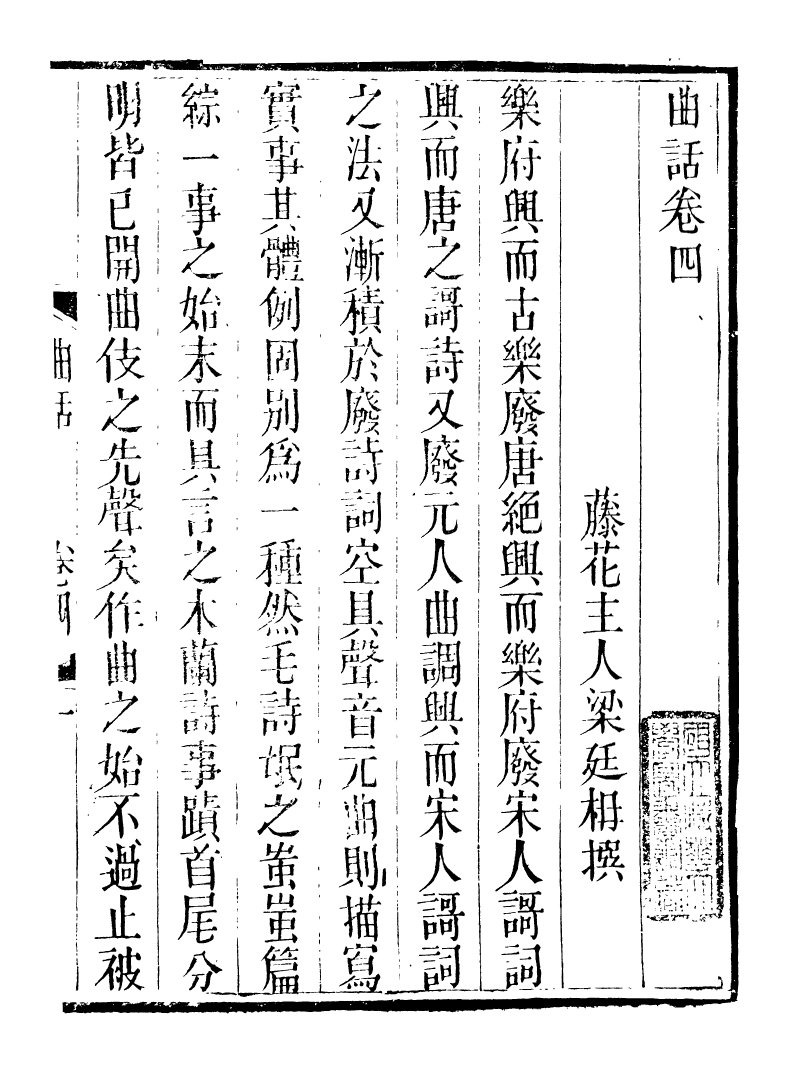 曲話卷四
藤花主人梁廷枏撰
樂府興而古樂廢唐絕興而樂府廢宋人謌詞
興而唐之謌詩又廢元人曲調興而宋人謌詞
之法又漸積於廢詩詞空具聲音元曲則描寫
實事其體例固别爲一種然毛詩氓之蚩蚩篇
綜一事之始末而具言之木蘭詩事蹟首尾分
明皆已開曲伎之先聲矣作曲之始不過止被
曲話 卷四 一